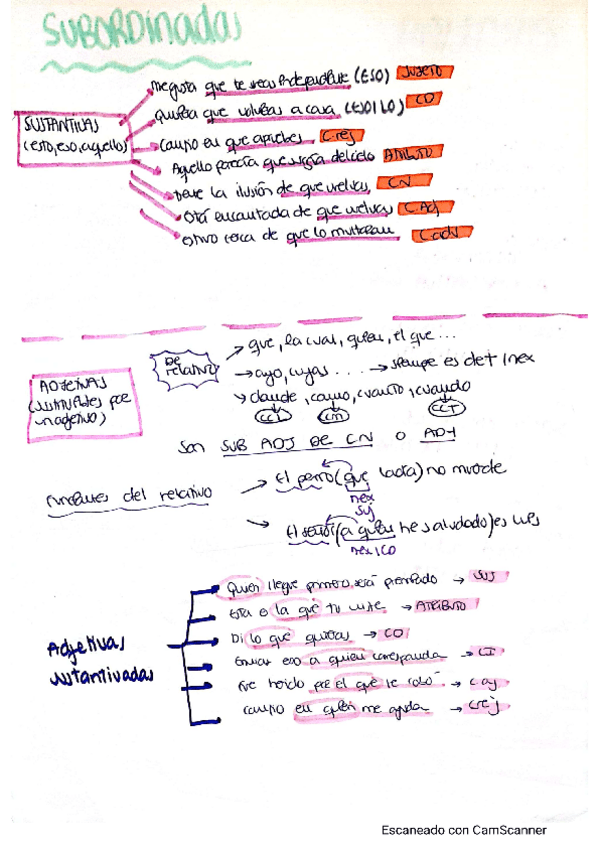 SUBORDinadas
me gusta que te seas independiente (ESO) SUJETO
quisiera que volvieras a casa (ESO/LO) CD
SUSTANTIVAS
(esto, eso, aquello)
Campo en que apruebes C.rej
Aquello parecía que surgía del cielo ATRIBUTO
Tiene la ilusión de que vuelvas CN
Está encantada de que vuelvas C.Adj
estuvo cerca de que lo multaran C.adv
que, la cual, quien, el que ...
DE relativo
cuyo, cuyas ... → siempre es det + nex
ADJETIVAS
(sustituibles por
un adjetivo)
donde, como, cuanto, cuando
CCL CCM CCT
Son SUB ADJ DE CN O ADY
funciones del relativo
El perro (que ladra) no muerde
nex
suj
El señor (a quien he saludado) es Luis
nex/CD
Quien llegue primero será premiado → SUJ
Esta es la que tu → ATRIBUTO
Di lo que quieras → CD
Adjetivas
sustantivadas
Enviar eso a quien corresponda → CI
Fue herido por el que le robó → C.ag
en quien me ayuda → C rej
Escaneado con CamScanner